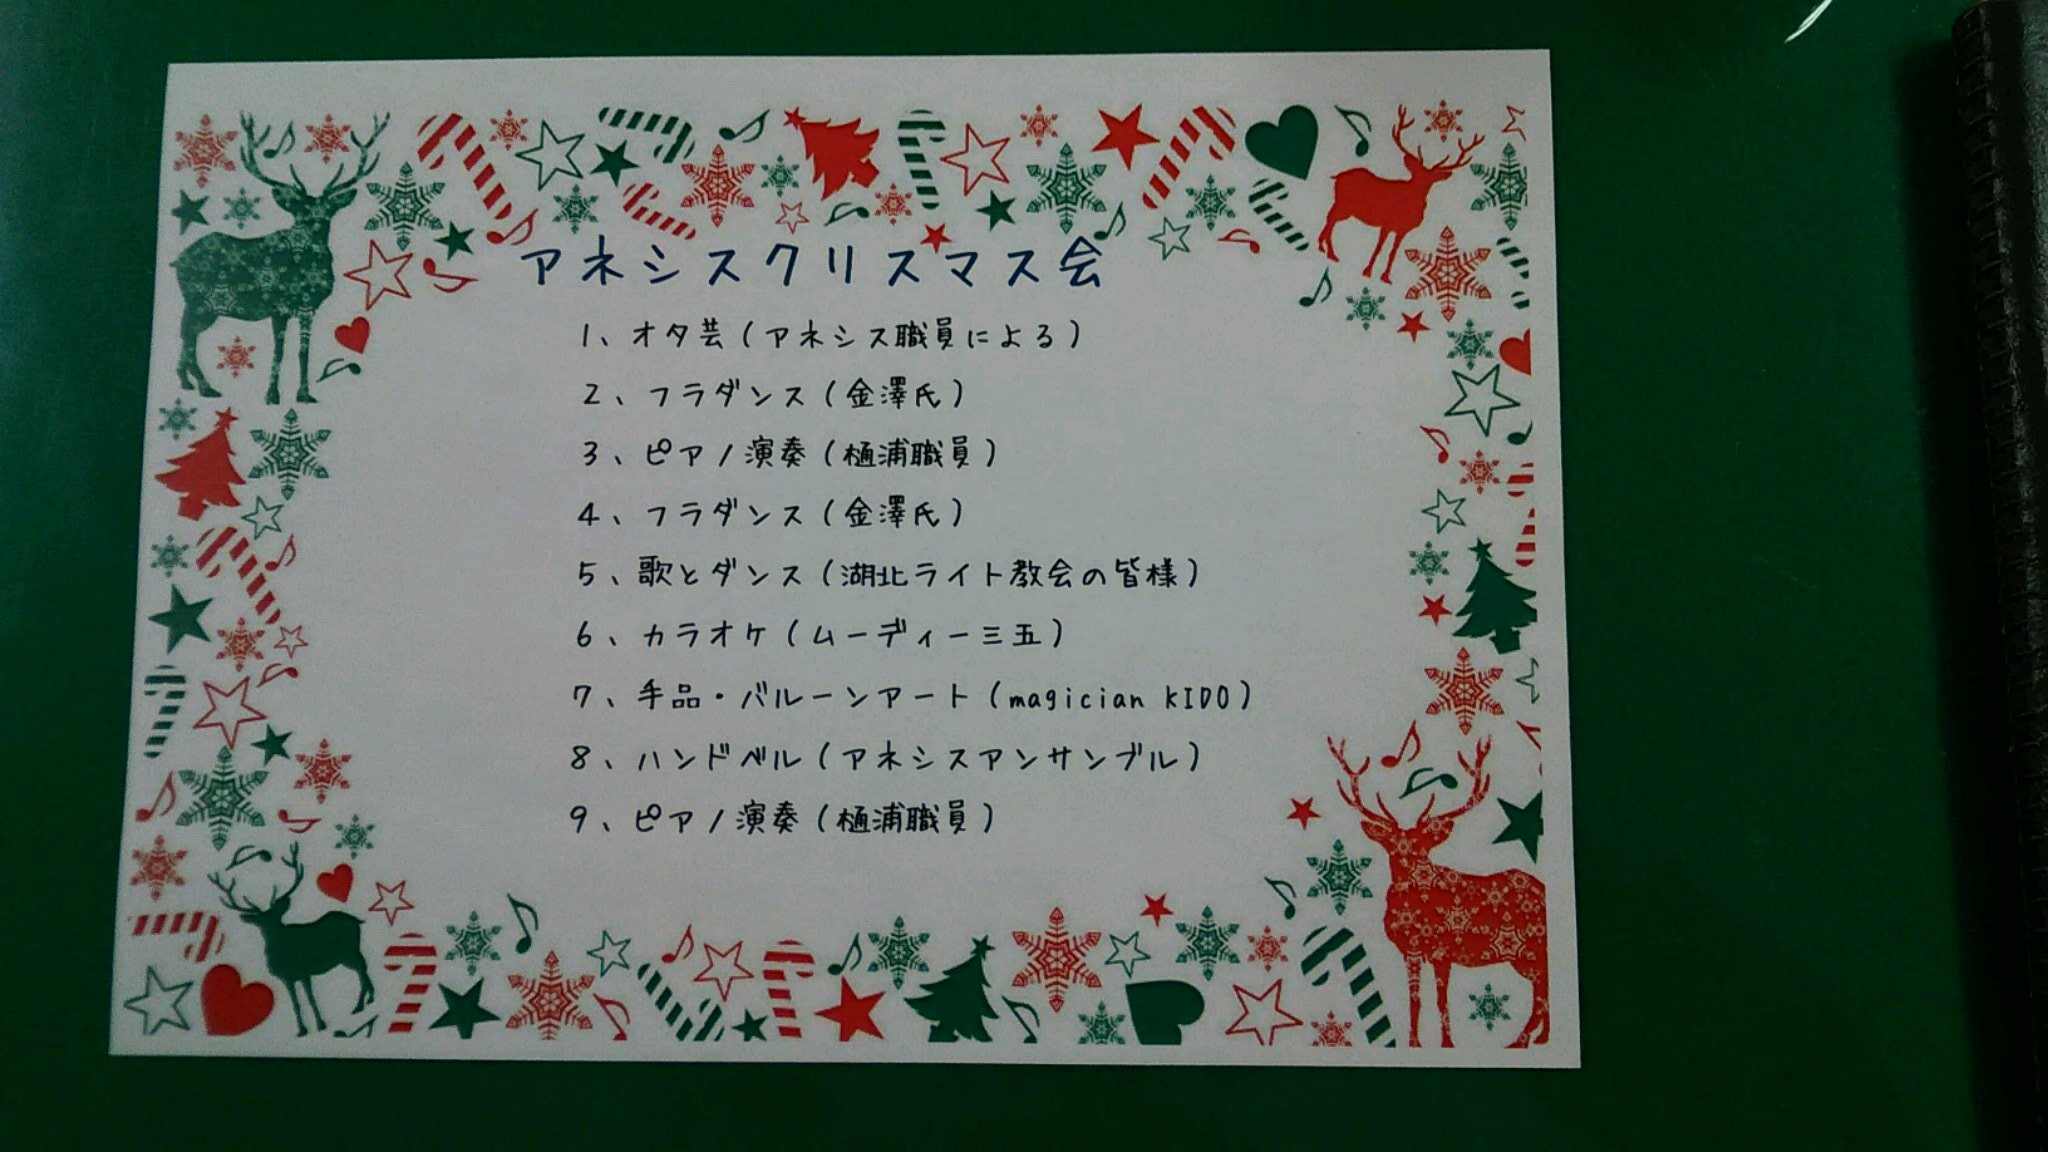 アネシスクリスマス会
1、オタ芸(アネシス職員による)
2、フラダンス(金澤氏)
3、ピアノ演奏(樋浦職員)
4、フラダンス(金澤氏)
5、歌とダンス(湖北ライト教会の皆様)
6、カラオケ(ムーディー三五)
7、手品・バルーンアート(magician KIDO)
8、ハンドベル(アネシスアンサンブル)
9、ピアノ演奏(樋浦職員)